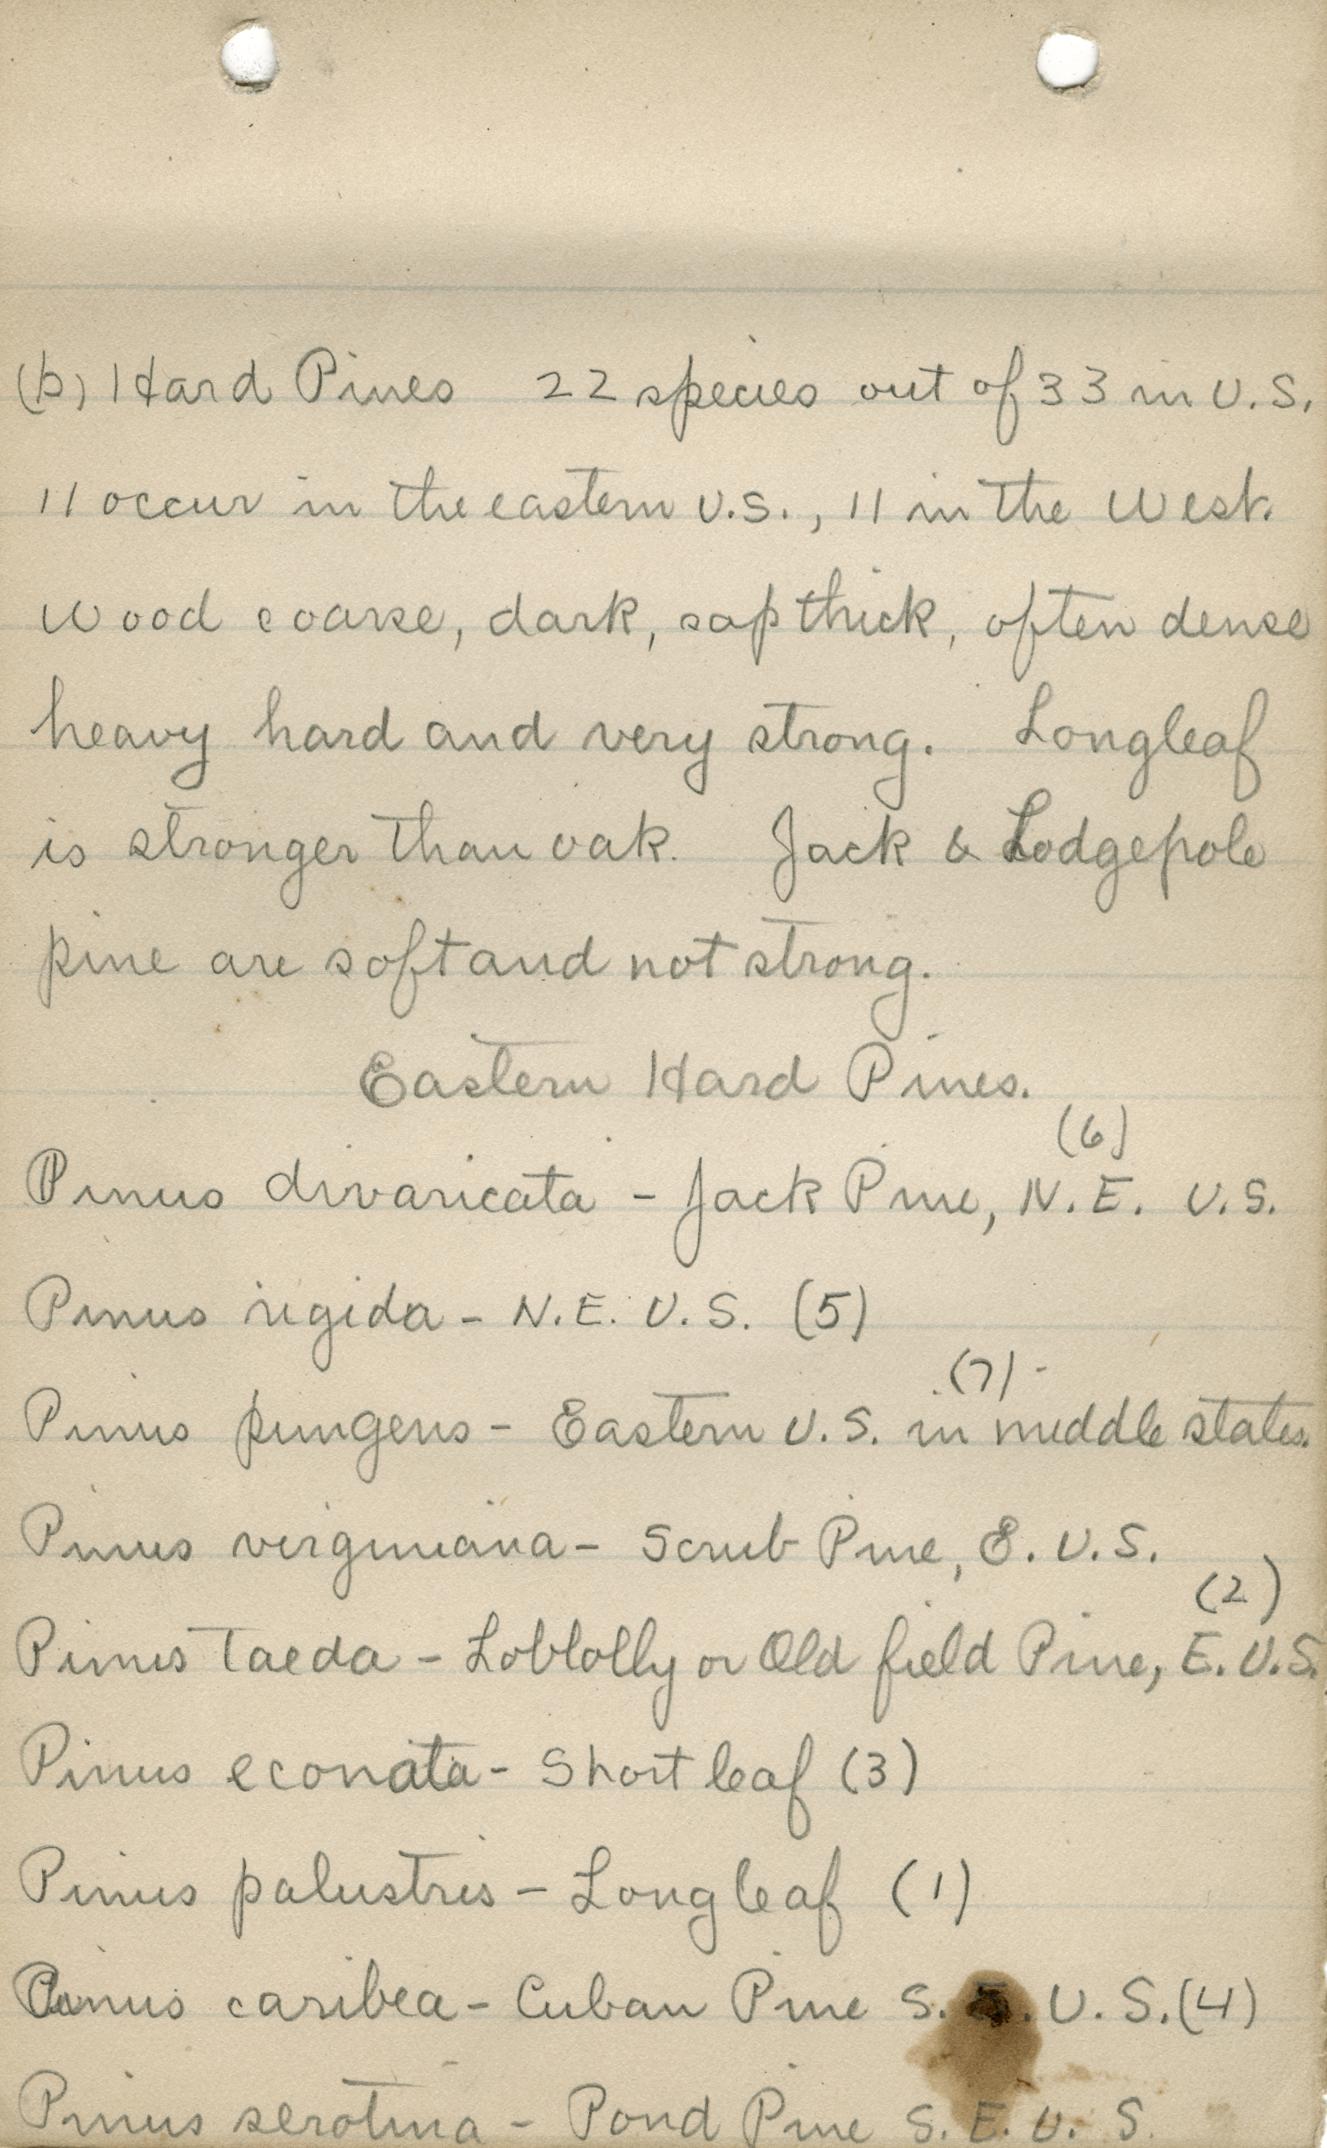 (b) Hard Pines 22 species out of 33 in U.S.
11 occur in the eastern U.S., 11 in the West.
Wood coarse, dark, sap thick, often dense
heavy hard and very strong. Longleaf
is stronger than oak. Jack & Lodgepole
pine are soft and not strong.
Eastern Hard Pines.
(6)
Pinus divaricata - Jack Pine, N.E. U.S.
Pinus rigida - N.E. U.S. (5)
(7)
Pinus pungens - Eastern U.S. in middle states.
Pinus virginiana - Scrub Pine, E. U.S.
(2)
Pinus Taeda - Loblolly or Old field Pine, E. U.S.
Pinus econata - Short leaf (3)
Pinus palustris - Longleaf (1)
Pinus caribea - Cuban Pine S. E. U. S. (4)
Pinus serotina - Pond Pine S. E. U. S.